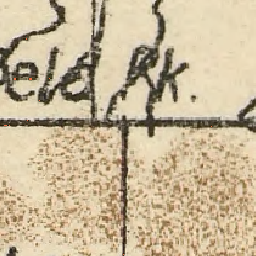 eld Rk.